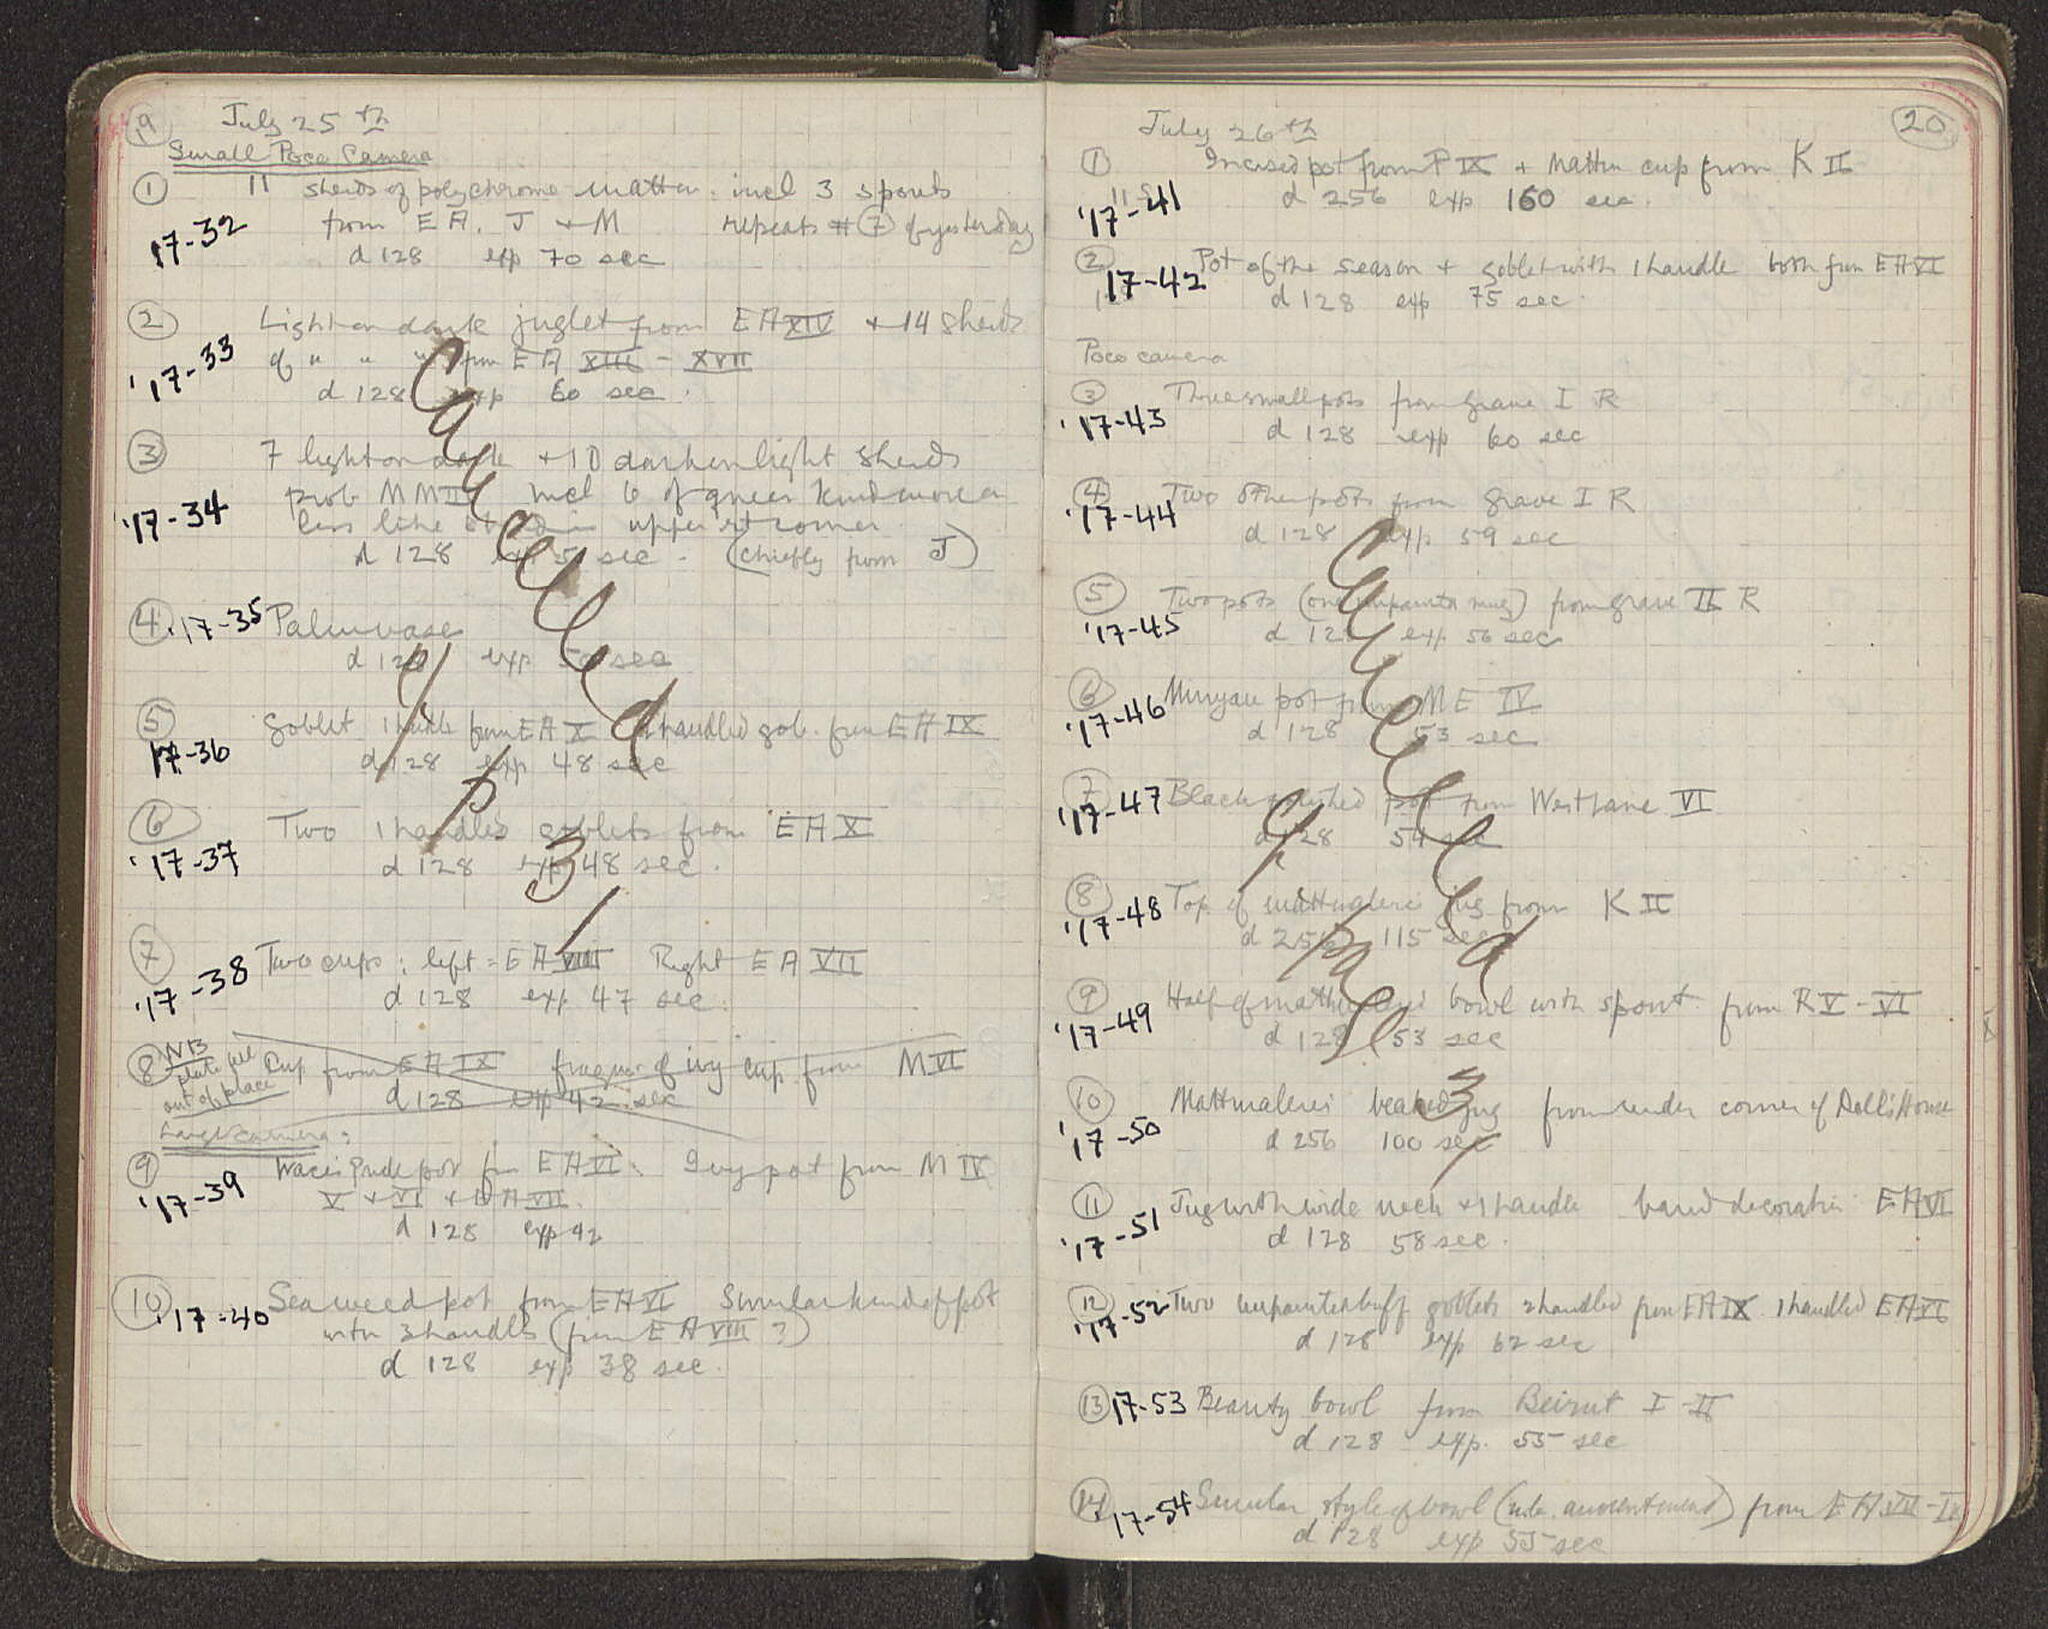 9
July 25th
Small Poco Camera
1 11 sherds of polychrome matten. incl 3 spouts
17-32 from EA, J + M repeats # 7 of yesterday
d 128 exp 70 sec
2 Light on dark juglet from EA XIV + 14 sherds
'17-33 of " " " from EA XIII - XVII
d 128 exp 60 sec.
3 7 light on dark + 10 dark on light sherds
prob MM II incl 6 of queer kind more or
'17-34 less like upper rt corner
d 128 exp sec. (chiefly from J)
4 '17-35 Palm vase
d 128 exp sec
5 goblet 1 handle from EA X 2 handled gob. from EA IX
17-36 d 128 exp 48 sec
6 Two 1 handled goblets from EA X
'17-37 d 128 exp 48 sec.
7 Two cups: left = EA VIII Right EA VII
'17-38 d 128 exp 47 sec.
8 NB plate fell out of place Cup from EA IX fragm. of ivy cup from M VI
d 128 exp 42 sec
Large camera:
9 pot from EA VI. Ivy pot from M IV
'17-39 V + VI + EA VII.
d 128 exp 42
10 '17-40 Seaweed pot from EA VI Similar kind of pot
with 3 handles (from EA VIII ?)
d 128 exp 38 sec.
Cataloged
April
31
20
July 26th
1 Incised pot from P IX + Matten cup from K II
'17-41 d 256 exp 160 sec.
2 17-42 Pot of the season + goblet with 1 handle both from EA VI
d 128 exp 75 sec.
Poco camera
3 Three small pots from grave I R
'17-43 d 128 exp 60 sec
4 Two other pots from grave I R
'17-44 d 128 exp 59 sec
5 Two pots (one unpainted mug) from grave II R
'17-45 d 128 exp 56 sec
6 '17-46 Minyan pot from ME IV
d 128 53 sec
7 '17-47 Black polished pot from West Lane VI
d 128 54 sec
8 '17-48 Top of mattmalerei jug from K II
d 256 115 sec
9 Half of mattmalerei bowl with spout from R V - VI
'17-49 d 128 53 sec
10 Mattmalerei beaked jug from under corner of Doll's House
'17-50 d 256 100 sec
11 Jug with wide neck + 1 handle band decoration EA VI
'17-51 d 128 58 sec.
12 '17-52 Two unpainted buff goblets 2 handled from EA IX 1 handled EA VI
d 128 exp 62 sec
13 17-53 Beauty bowl from Beirut I - II
d 128 exp. 55 sec
14 17-54 Similar style of bowl (n.b. ancient mend) from EA VII - IX
d 128 exp 55 sec
Cataloged
April
31